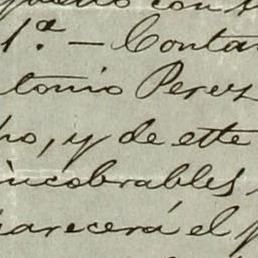 con
1.ª — Conta
tonio Perez
ho, y de este
incobrables,
arecerá el p